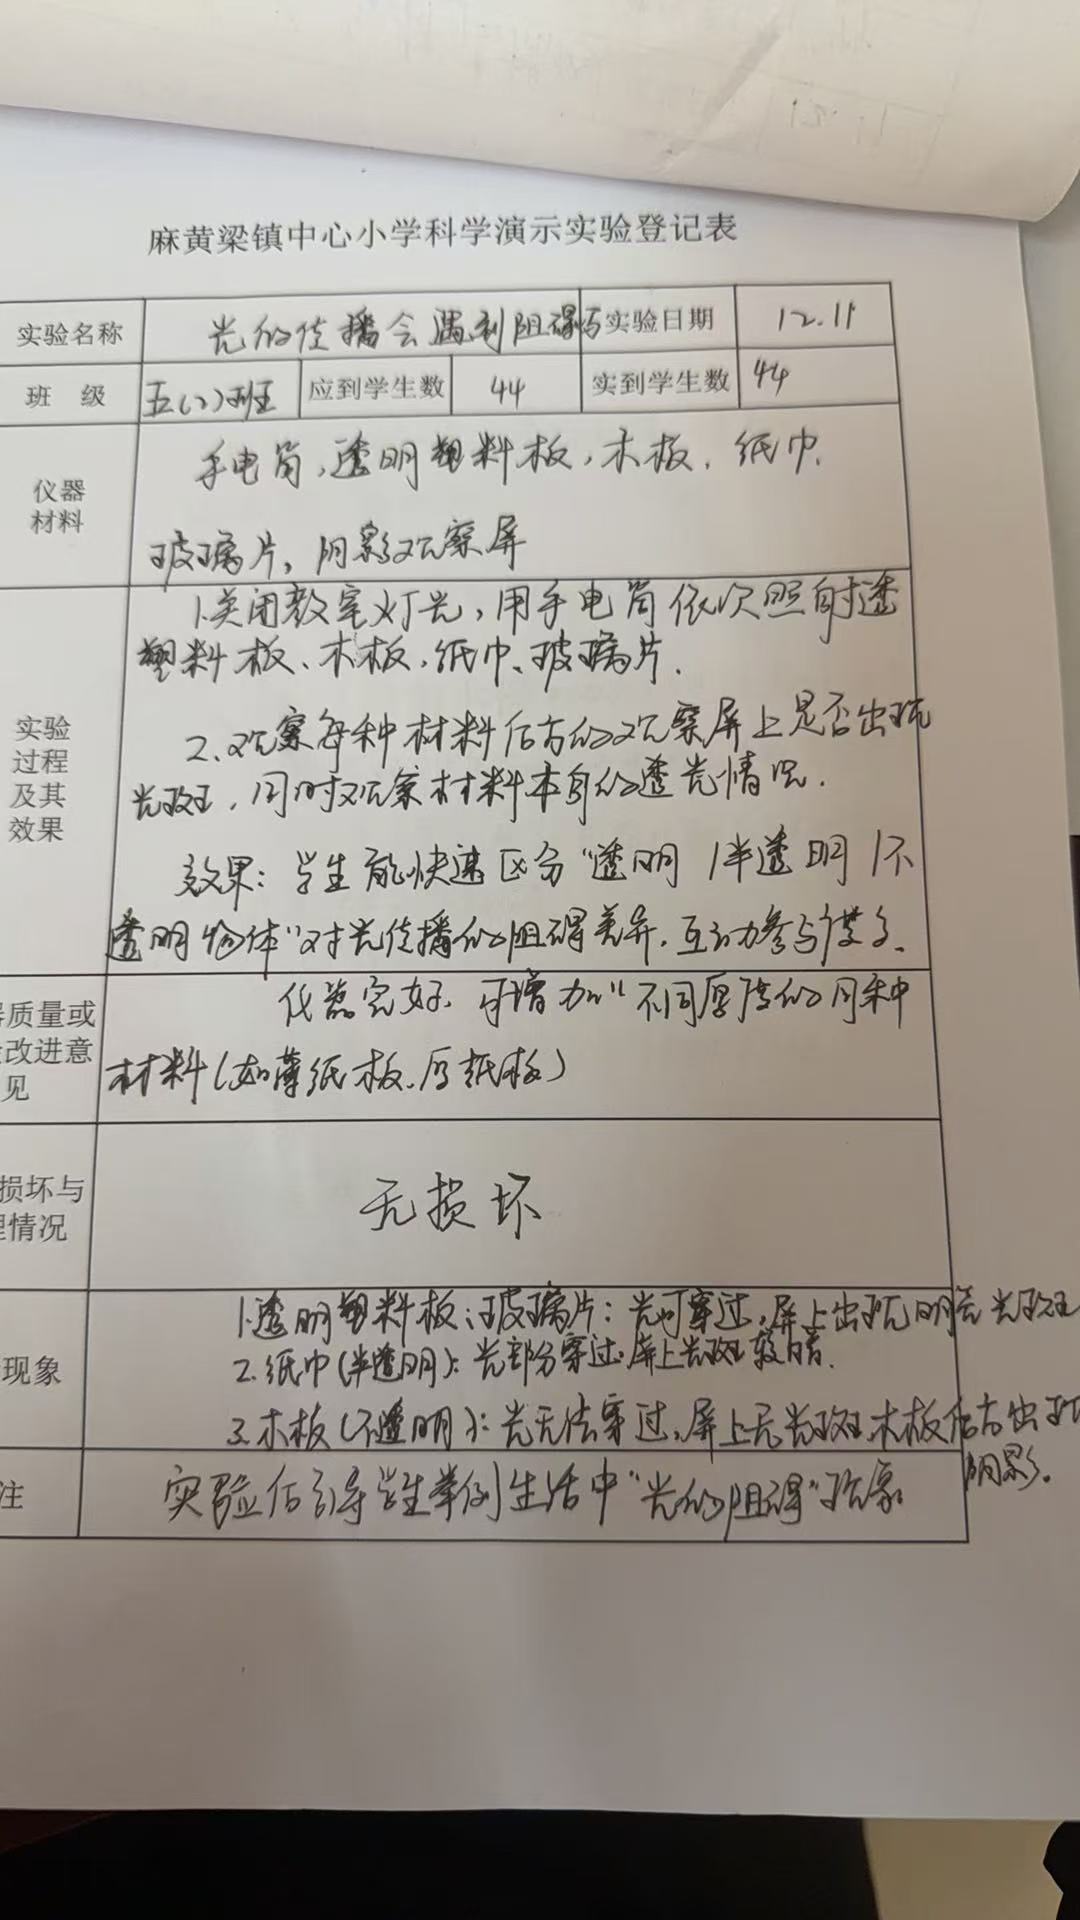 麻黄梁镇中心小学科学演示实验登记表
实验名称 光的传播会遇到阻碍吗 实验日期 12.11
班 级 五(2)班 应到学生数 44 实到学生数 44
仪器
材料
手电筒，透明塑料板，木板、纸巾、
玻璃片，阴影观察屏
实验
过程
及其
效果
1.关闭教室灯光，用手电筒依次照射透
塑料板、木板、纸巾、玻璃片.
2.观察每种材料后方的观察屏上是否出现
光斑，同时观察材料本身的透光情况.
效果：学生能快速区分"透明/半透明/不
透明物体"对光传播的阻碍差异，互动参与度高.
质量或
改进意
见
仪器完好，可增加"不同厚度的同种
材料(如薄纸板、厚纸板)
损坏与
情况
无损坏
现象
1.透明塑料板、玻璃片：光可穿过，屏上出现明亮光斑
2.纸巾(半透明)：光部分穿过，屏上光斑较暗.
3.木板(不透明)：光无法穿过，屏上无光斑，木板后方出现
阴影.
注
实验后引导学生举例生活中"光的阻碍"现象